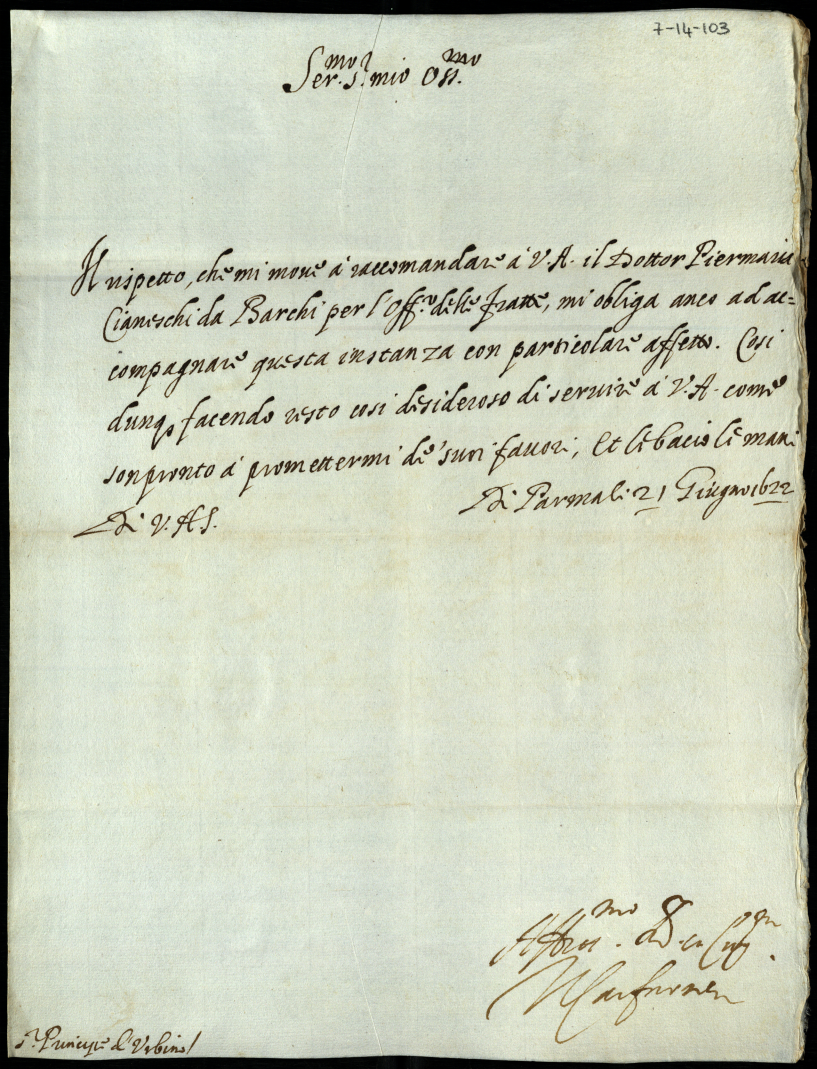 7-14-103
Ser.mo S.r mio Oss.mo
Il rispetto, che mi moue à raccomandare à V.A. il Dottor Piermaria
Cianeschi da Barchi per l'Off.o delle fratte, mi obliga anco ad ac=
compagnare questa instanza con particolare affetto. Cosi
dunq. facendo resto cosi desideroso di seruire à V.A. come
son pronto à promettermi de' suoi fauori, Et le bacio le mani
Di Parma li 21 Giugno 1622
Di V.A.S.
S.r Principe d'Vrbino